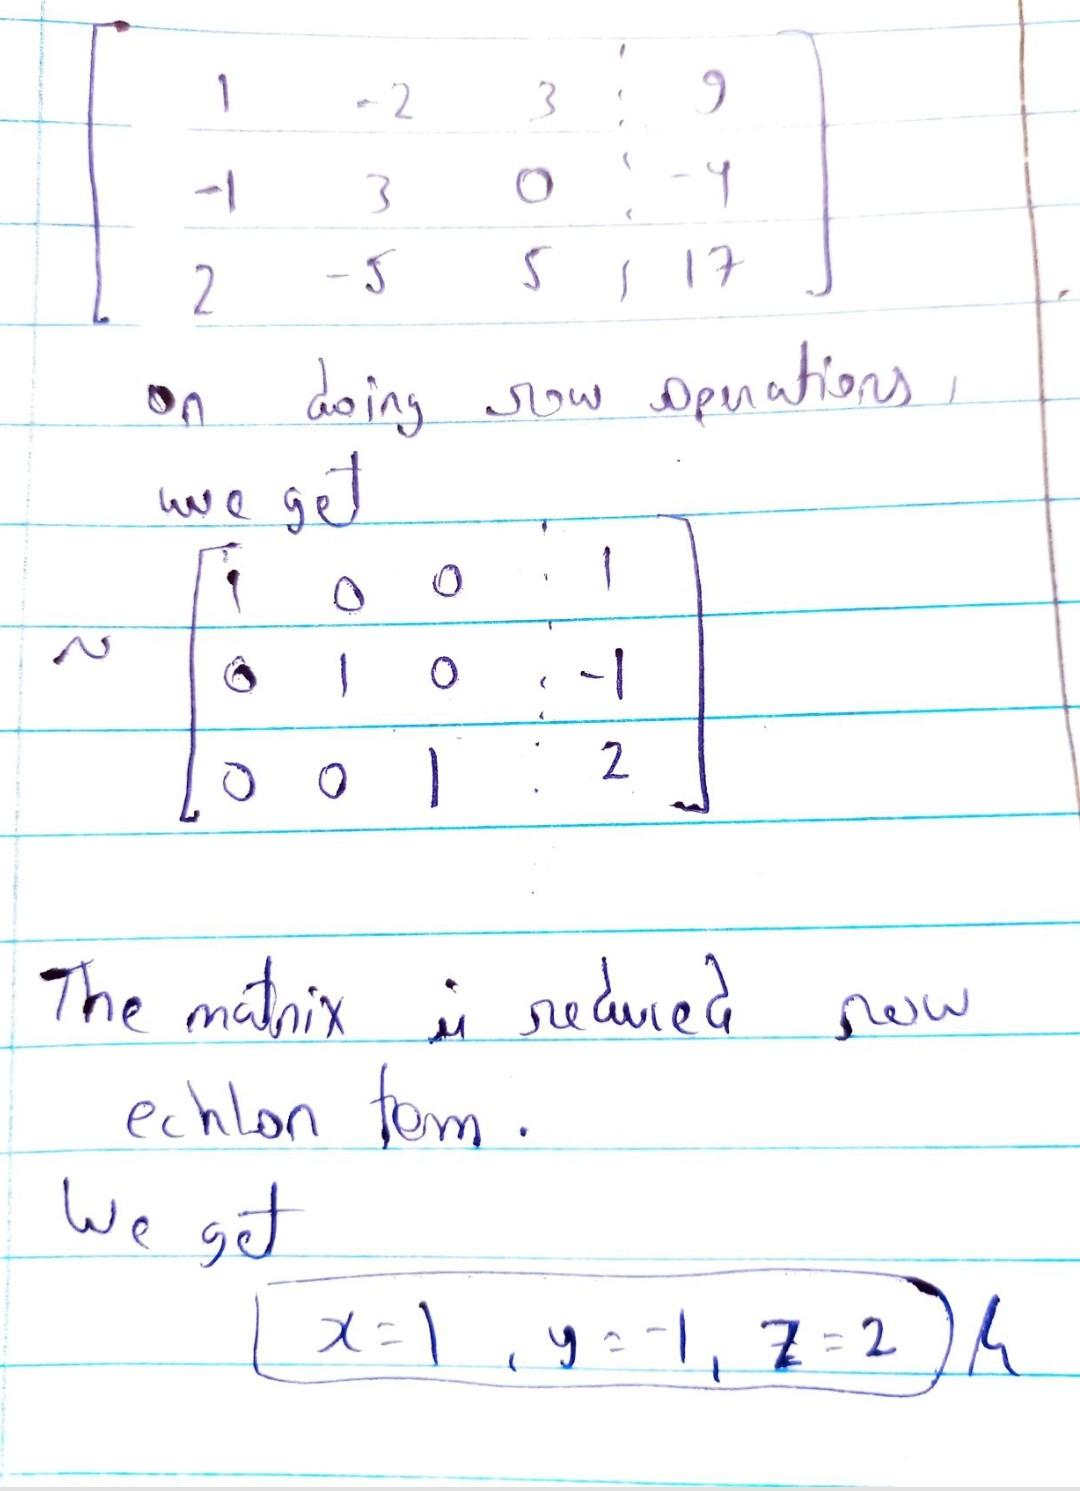 1 -2 3 ⋮ 9
-1 3 0 ⋮ -4
2 -5 5 ⋮ 17
on doing row operations,
we get
~
1 0 0 ⋮ 1
0 1 0 ⋮ -1
0 0 1 ⋮ 2
The matrix is reduced row
echlon form.
We get
x=1, y=-1, z=2